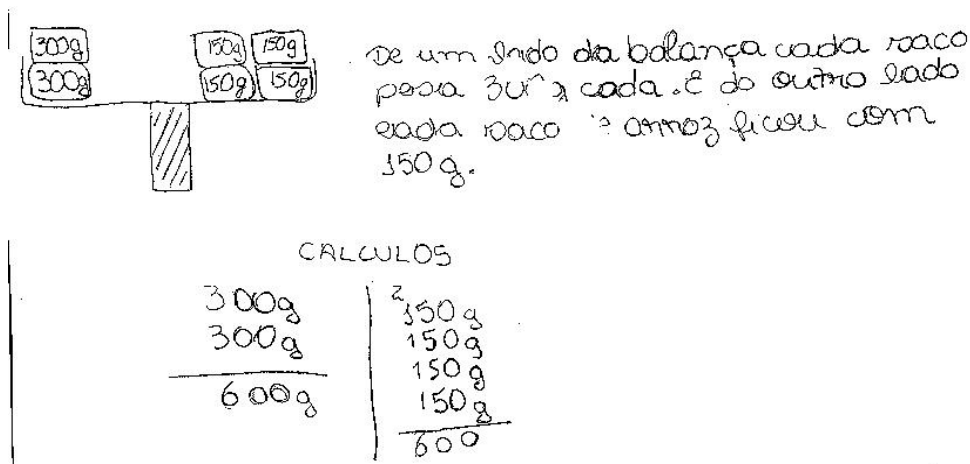 300g 150g 150g
300g 150g 150g
De um lado da balança cada saco
pesa cada. E do outro lado
cada saco arroz ficou com
150 g.
CALCULOS
300g
300g
600g
2
150g
150g
150g
150g
600